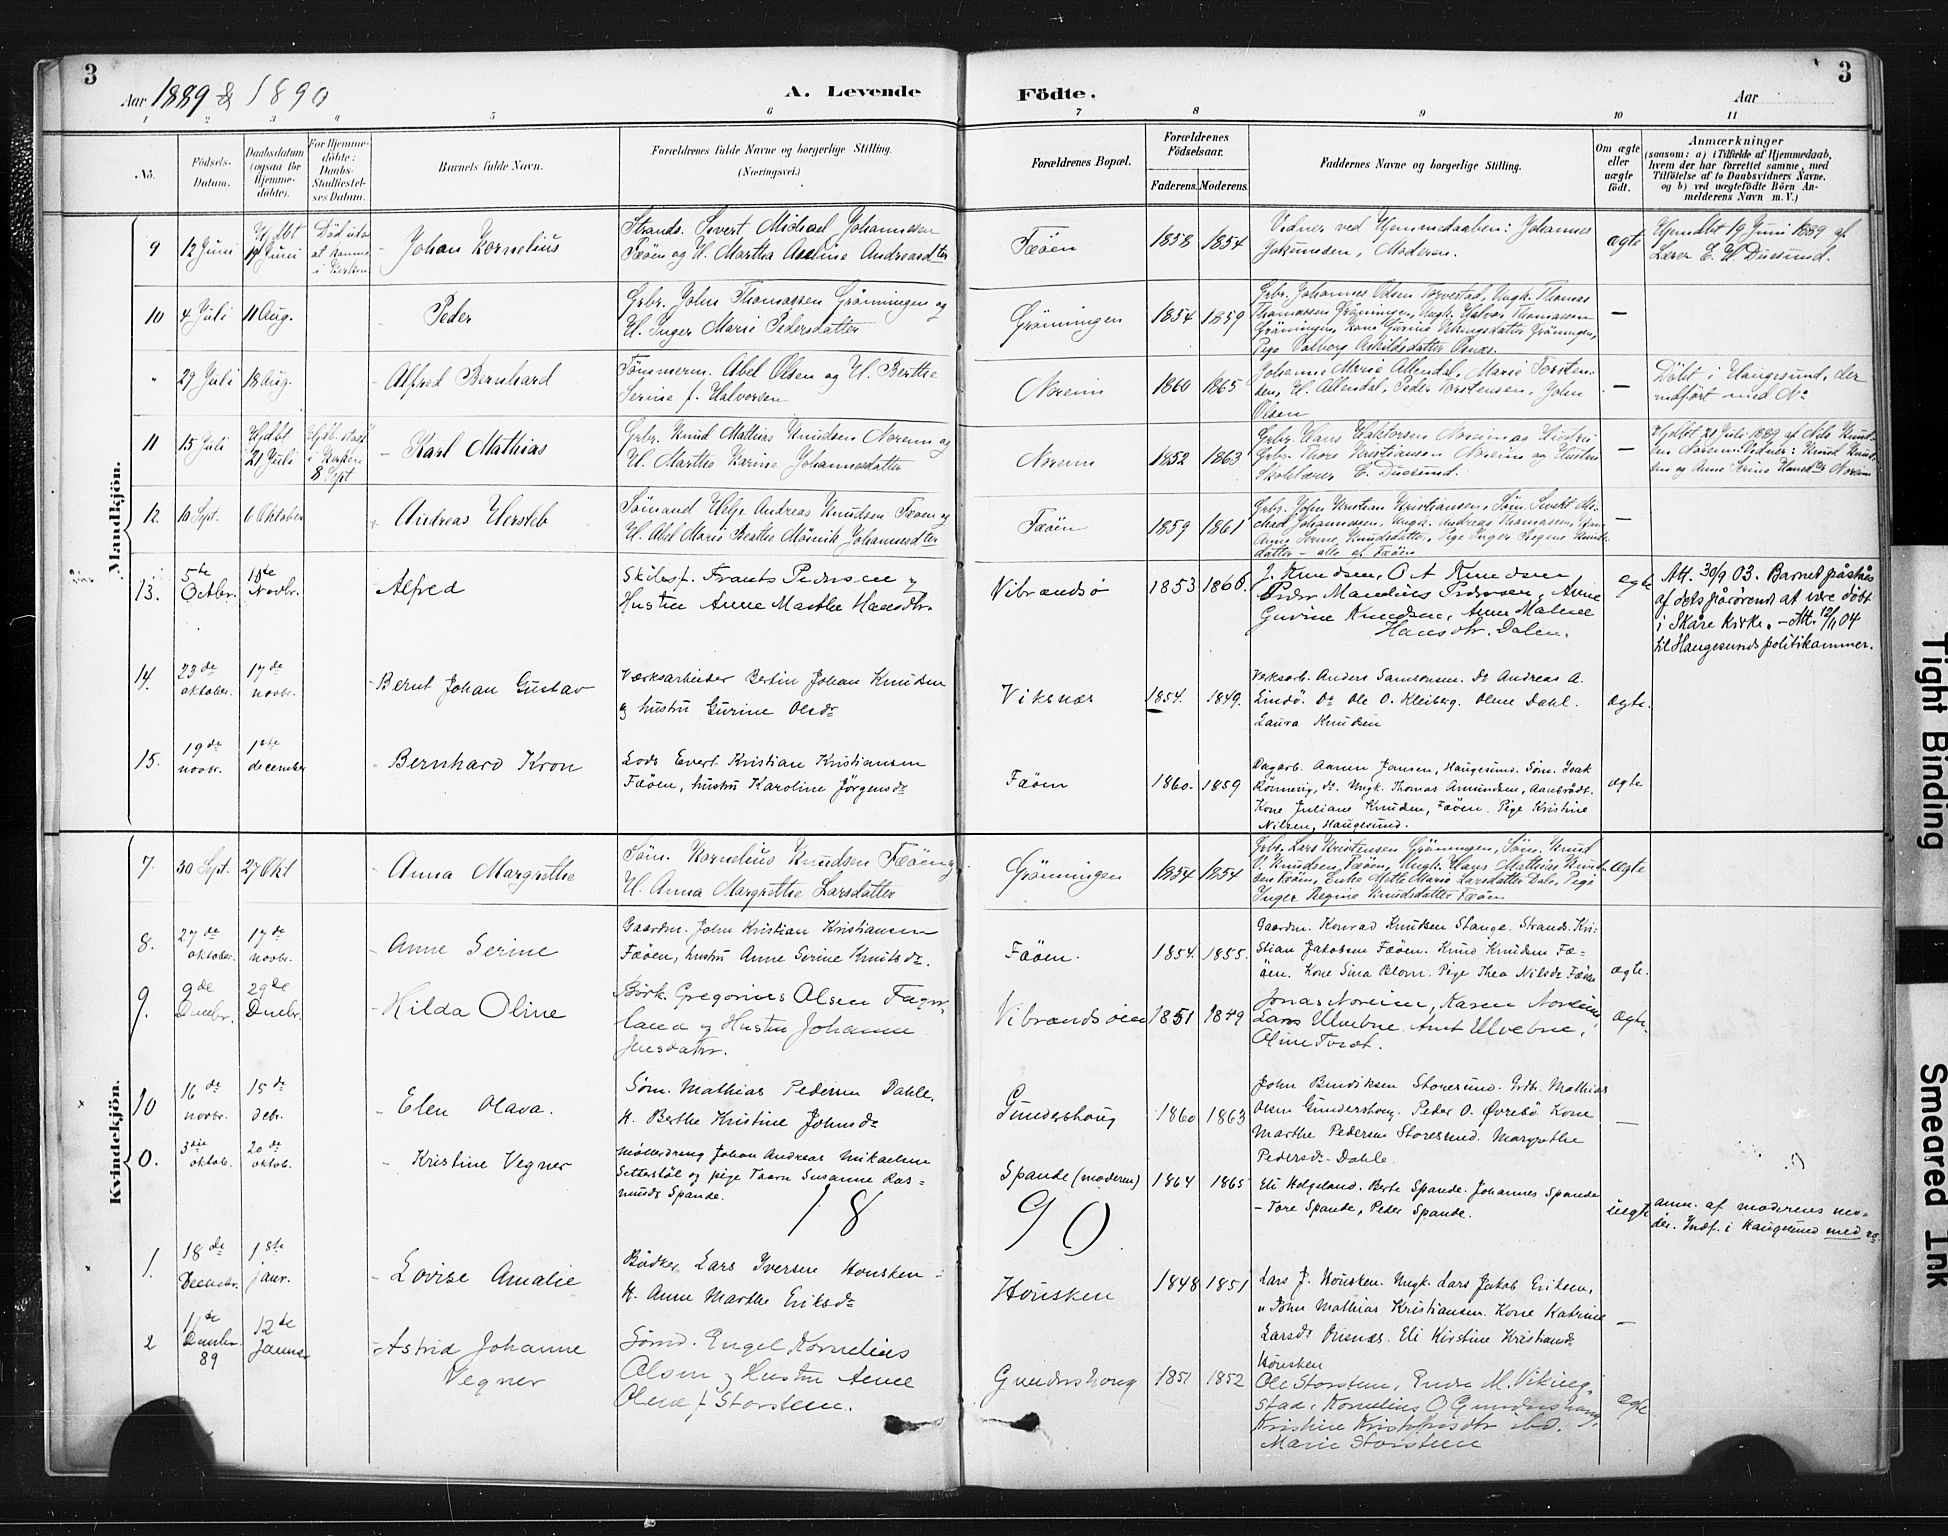 3
Aar 1889 & 1890
A. Levende
Födte.
Aar
3
1 2 3 4 5 6 7 8 9 10 11
No.
Födsels-Datum.
Daabsdatum (ogsaa for Hjemme-döbte).
For Hjemme-döbte: Daabs-Stadfæstel-ses Datum.
Barnets fulde Navn.
Forældrenes fulde Navne og borgerlige Stilling. (Næringsvei.)
Forældrenes Bopæl.
Forældrenes Födselsaar.
Faderens. Moderens.
Faddernes Navne og borgerlige Stilling.
Om ægte eller uægte födt.
Anmærkninger
(saasom: a) i Tilfælde af Hjemmedaab, hvem der har forrettet samme, med Tilföielse af to Daabsvidners Navne, og b) ved uægtefödte Börn Anmelderens Navn m. V.)
Mandkjön.
9 12 Juni Hjdbt 19 Juni Död uden at komme i Kirken
Johan Kornelius
Strands. Sivert Michael Johannessen
Fæöen og H. Martha Aseline Andreasdter
Fæöen 1858 1854
Vidner ved Hjemmedaaben: Johannes
Jakobsen, Moderen.
ægte
Hjemdbt 19 Juni 1889 af
Lærer E. H. Duesund.
10 4 Juli 11 Aug.
Peder
Grbr. John Thomassen Gröningen og
H. Inger Marie Pedersdatter
Gröningen 1854 1859
Grbr. Johannes Olsen Torvestad, Ungk. Thomas
Thomassen Gröningen, Ungk. Halvor Thomassen
Gröningen, Kone Gurine Vikingsdatter Gröningen,
Pige Valborg Askildsdatter Osnes.
—
" 29 Juli 18 Aug.
Alfred Bernhard
Tömmerm. Abel Olsen og H. Berthe
Serine f. Halvorsen
Noreim 1860 1865
Johanne Marie Allendal, Marie Torsten-
sen, H. Allendal, Peder Torstensen, John
Olsen
—
Döbt i Haugesund, der
indfört med No
11 15 Juli Hjdbt 21 Juli Hjdb. stadf. i Kirken 8 Sept
Karl Mathias
Grbr. Knud Mathias Knudsen Noreim og
H. Marthe Karine Johannesdatter
Noreim 1852 1863
Grbr. Hans Haktorsen Noreim og Hustru
Grbr. Thore Kristiansen Noreim og Hustru
Skolelærer E. Duesund.
—
Hjdbt 21 Juli 1889 af Nils Knud-
sen Noreim. Vidner: Knud Knud-
sen og Anne Serine Hansdter Noreim
12. 10 Sept. 6 Oktober
Andreas Hersleb
Sömand Helje Andreas Knudsen Fæöen og
H. Abel Marie Beathe Mönik Johannesdter
Fæöen 1859 1861
Grbr. John Kristian Kristiansen, Söm. Sivert Mi-
chael Johannessen, Ungk. Andreas Thomassen,
Anne Serine Knudsdatter, Pige Inger Regine Knuds-
datter - alle af Fæöen
—
13. 5te Octbr. 10de Novbr.
Alfred
Skibsf. Frants Pedersen og
Hustru Anne Marthe Hansdtr.
Vibrandsö 1853 1866.
J. Knudsen, O A Knudsen
Peder Mandius Pedersen, Anne
Gurine Knudsen, Anne Malene
Hansdtr. Dalen.
ægte
Att. 30/9 03. Barnet påståes
af dets pårörende at være döbt
i Skåre kirke. - Att. 12/11 04
til Haugesunds politikammer.
14. 23de oktober. 17de novbr.
Bernt Johan Gustav
Værksarbeider Bertin Johan Knudsen
og hustru Gurine Olsdr
Viksnæs 1854. 1849.
Verksarb. Anders Samsonsen. Do Andreas A.
Lindö. Do Ole O. Kleiberg. Oline Dahl.
Laura Knudsen
ægte.
15. 19de novbr. 1ste december
Bernhard Kron
Lods Evert Kristian Kristiansen
Fæöen, hustru Karoline Jörgensdr
Fæöen 1860. 1859
Dagarb. Aamen Jansen, Haugesund. Söm. Isak
Rönnevig, do. Ungk. Thomas Amundsen, Aanbrödt.
Kone Juliane Knudsen, Fæöen. Pige Kristine
Nilsen, Haugesund.
ægte
Kvindekjön.
7. 30 Sept. 27 Okt
Anna Margrethe
Söm. Kornelius Knudsen Fæöen og
H. Anna Margrethe Larsdatter
Gröningen 1854 1854
Grbr. Lars Kristensen Gröningen, Söm. Knud
V. Knudsen Fæöen, Ungk. Hans Mathias Knud-
sen Fæöen, Enke Mette Marie Larsdatter Dale, Pige
Inger Regine Knudsdatter Fæöen
ægte
8. 27de oktober. 17de novbr.
Anne Serine
Gaardm. John Kristian Kristiansen
Fæöen, hustru Anne Serine Knutsdr.
Fæöen. 1854. 1855.
Gaardm. Konrad Knudsen Stange. Strands. Kri-
stian Jakobsen Fæöen. Knud Knudsen Fæ-
öen. Kone Sina Blom. Pige Thea Nilsdr Fæöen
ægte.
9. 9de Dcmbr. 29de Dcmbr.
Hilda Oline
Börk. Gregorius Olsen Fager-
land og Hustru Johanne
Jensdatter.
Vibrandsöen 1851 1849
Jonas Noreim, Karen Noreim,
Lars Ulvebne, Amt Ulvebne,
Oline Tvedt.
ægte.
10 16de novbr. 15de debr.
Elen Olava.
Söm. Mathias Pedersen Dahle,
H. Berthe Kristine Johnsdr
Gundershoug 1860 1863
John Bendiksen Storesund. Grdbr. Mathias
Olsen Gundershoug. Peder O. Øvrebö. Kone
Marthe Pedersen Storesund. Margrethe
Pedersdr Dahle.
—
0. 3die oktob. 20de oktob.
Kristine Vegner
Mölledreng Johan Andreas Mikaelsen
Setterstöl og pige Taarn Susanne Ras-
musdr Spande.
Spande (moderen) 1864 1865
Eli Helgeland. Berte Spande. Johannes Spande
- Tore Spande, Peder Spande.
uægte
anm. af moderens mo-
der. Indf. i Haugesund med no.
18 90
1. 18de Decembr. 1ste janr.
Lovise Amalie
Bödker Lars Iversen Housken -
H. Anne Marthe Eriksdr
Housken 1848 1851
Lars J. Housken. Ungk. Lars Jakob Eriksen,
" John Mathias Kristiansen. Kone Katrine
Larsdr Ousnæs. Eli Kirstine Kristiansdr
Housken
—
2 11de Dcmbr. 89 12te Januar
Astrid Johanne
Vegner
Sömd. Engel Kornelius
Olsen og Hustru Anne
Olene f Storsteen.
Gundershoug 1851 1852
Ole Storsteen, Endre M. Viking-
stad, Kornelius O Gundershoug,
Kristine Kristoffersdtr ibd.
Marie Storsteen
ægte
Tight Binding
Smeared Ink